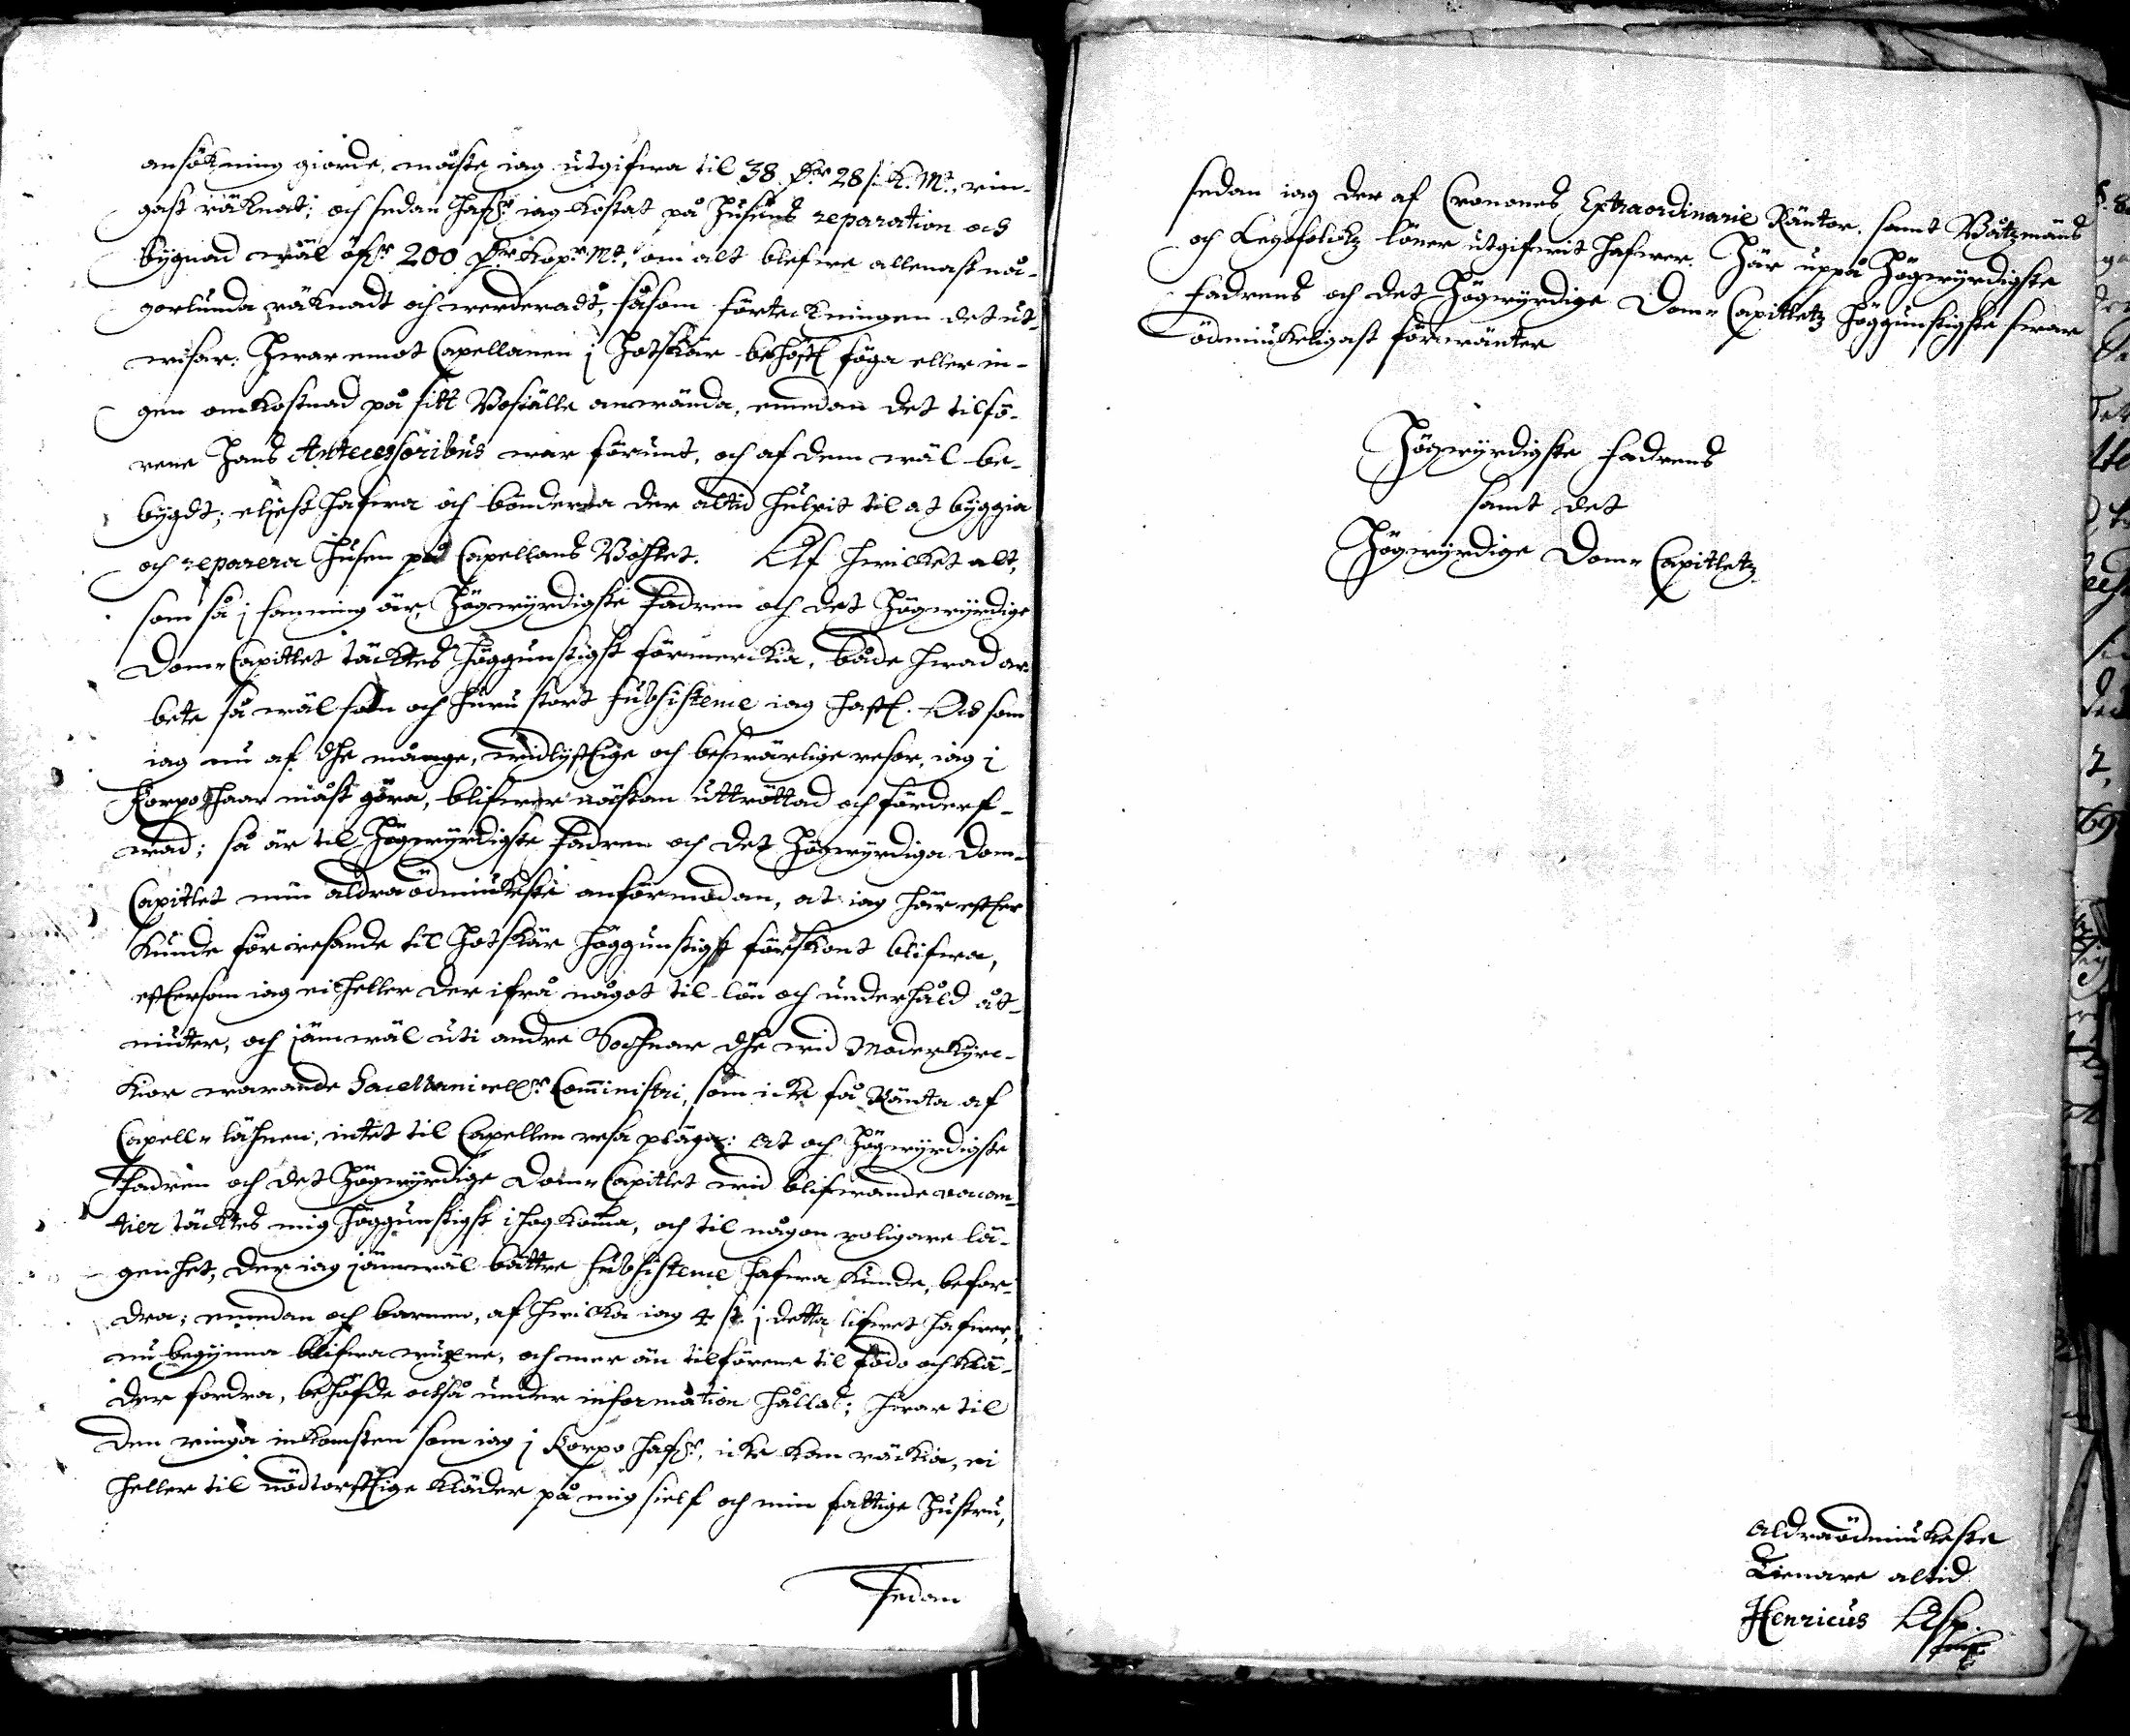 ansökning giorde, måste iag utgifwa til 38 Dlr 28 s: K. Mt, rin-
gast räknat; och sedan hafr iag kostat på Husens reparation och
bygnad wäl öfr 200 Dlr Kopr Mt, om alt blefwe allenast nå-
gorlunda räknadt och werderadt, såsom förteckningen det ut-
wisar. Hwar emot Capellanen i Hotskär behöft föga eller in-
gen omkostnad på sitt Boställe anwända, emedan det tilfö-
rene hans Antecessoribus war förunt, och af dem wäl be-
bygdt; eljest hafwa och bönderna der altid hulpit til at byggia
och reparera Husen på Capellans Bohlet. Af hwilket alt,
som så i sanning är, Högwyrdigste Fadren och det Högwyrdige
Dom-Capitlet täcktes höggunstigst förmerckia, både hwad ar-
bete så wäl som och huru stort subsistence iag haft. Och som
iag nu af dhe månge, widlyftige och beswärlige resor, iag i
Korpo haar måst göra, blifwer nästan uttröttad och förderf-
wad; så är til Högwyrdigste Fadren och det Högwyrdiga Dom-
Capitlet min aldraödmiukeste anförmodan, at iag här efter
kunde för resande til Hotskär höggunstigst förskont blifwa,
eftersom iag ei heller der ifrå något til lön och underhåld åt-
niuter, och jämwäl uti andre Sochnar dhe wid Moderkyrc-
kior warande Sacellani ellr Comministri, som icke få Ränta af
Capell-lähnen, intet til Capellen resa pläga: at och Högwyrdigste
Fadren och det Högwyrdige Dom-Capitlet wid blifwande vacan-
tier täcktes mig höggunstigst ihogkomma, och til någon roligare lä-
genhet, der iag jämwäl bättre subsistence hafwa kunde, befor-
dra; emedan och barnen, af hwilka iag 4 st. i detta lifwet hafwer,
nu begynna blifwa wuxne, och mer än tilförene til födo och klä-
der fordra, behöfde också under information hållas; hwar til
den ringa inkomsten som iag i Korpo hafr, icke kan räckia, ei
heller til nödtorftige kläder på mig sielf och min fattige Hustru,
sedan
sedan iag der af Cronones Extraordinarie Räntor, samt Båtzmäns
och Legofolcktz löner utgifwit hafwer. Här uppå Högwyrdigste
Fadrens och det Högwyrdige Dom-Capitletz höggunstigste swar
ödmiukeligast förwänter
Högwyrdigste Fadrens
samt det
Högwyrdige Dom-Capitletz
Aldraödmiukeste
Tienare altid
Henricus Asp.